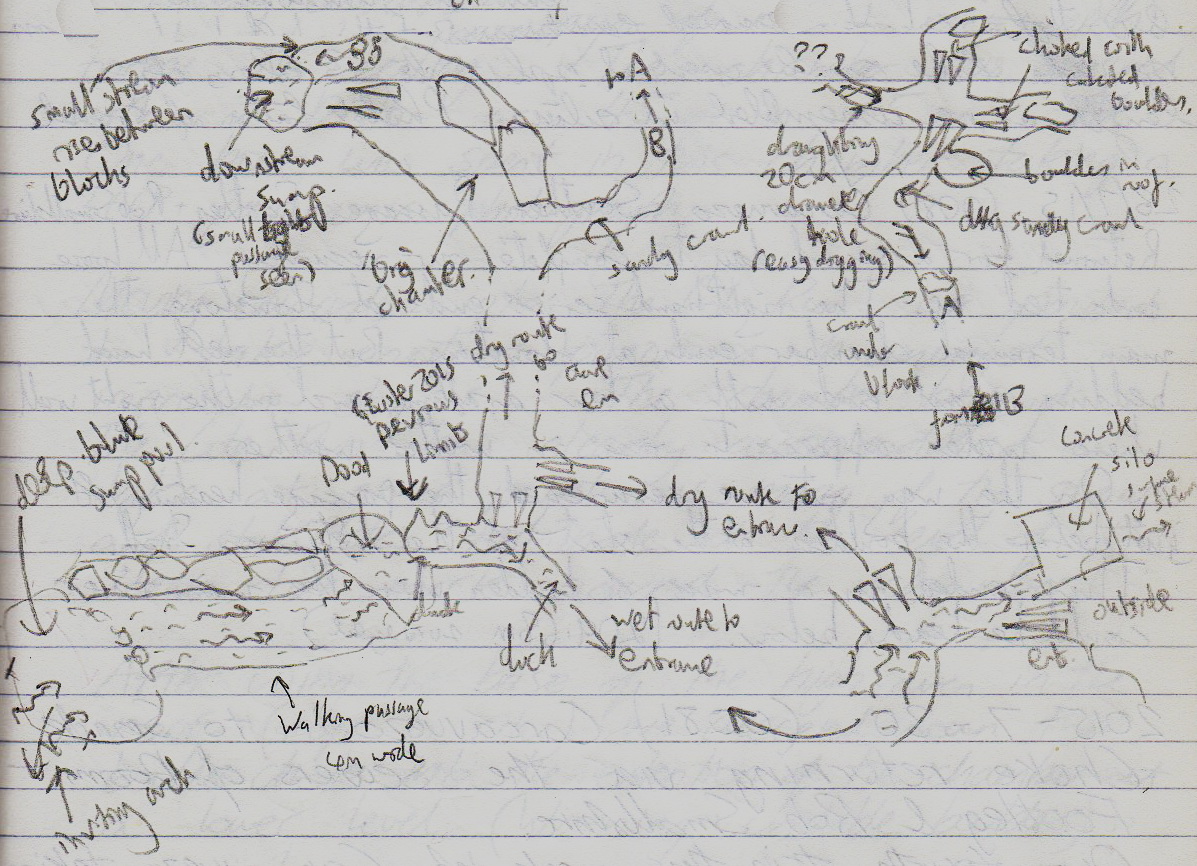 small stream
rises between
blocks
downstream
sump.
(small
passage
seen)
big
chamber.
to A
B
sandy crawl.
???
draughting
20cm
diameter
hole
(easy digging)
choked with
calcited
boulders.
boulders in
roof.
dug sandy crawl
A
crawl
under
block.
from B
deep blue
sump pool
Pool
(Easter 2015
previous
limit)
dry route
to
duck
duck
dry route to
entrance.
wet route to
entrance
Walking passage
4m wide
inviting arch
concrete
silo
outside
ent.